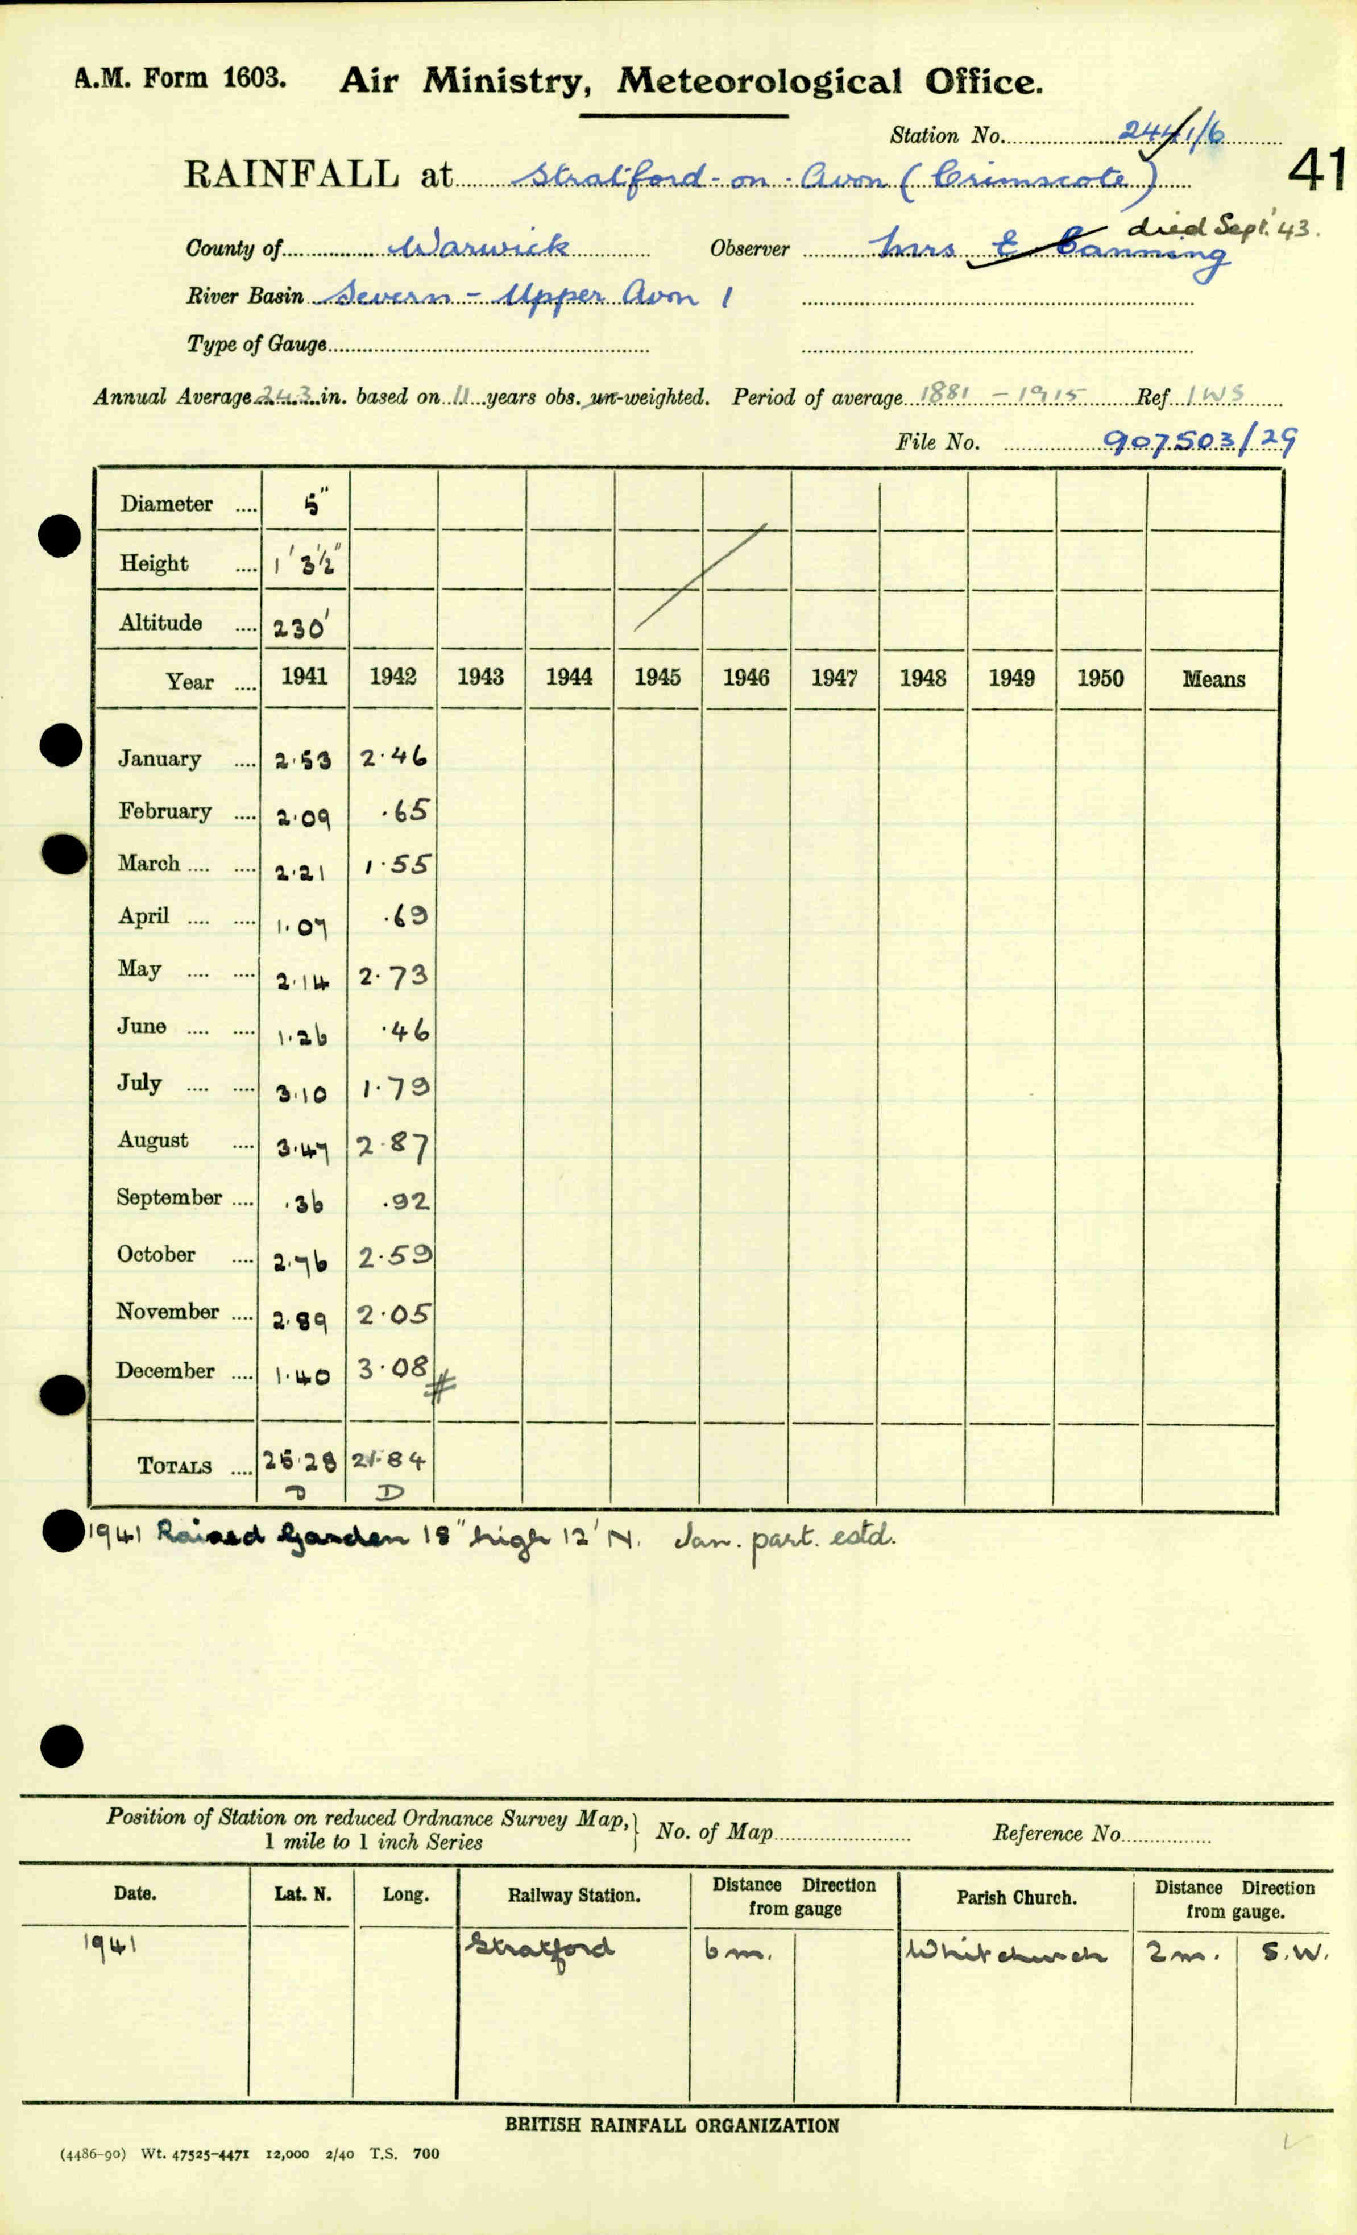 A.M. Form 1603. Air Ministry, Meteorological Office.
Station No. 2441/6
41
RAINFALL at Stratford-on-Avon (Crimscote)
died Sept. '43.
County of Warwick Observer Mrs E Canning
River Basin Severn - Upper Avon 1
Type of Gauge
Annual Average 24.3 in. based on 11 years obs. un-weighted. Period of average 1881 - 1915 Ref IWS
File No. 907503/29
Diameter .... 5"
Height .... 1' 3½"
Altitude .... 230'
Year .... 1941 1942 1943 1944 1945 1946 1947 1948 1949 1950 Means
January .... 2.53 2.46
February .... 2.09 .65
March .... .... 2.21 1.55
April .... .... 1.07 .69
May .... .... 2.14 2.73
June .... .... 1.26 .46
July .... .... 3.10 1.79
August .... 3.47 2.87
September .... .36 .92
October .... 2.76 2.59
November .... 2.89 2.05
December .... 1.40 3.08 #
TOTALS .... 25.28 21.84
D D
1941 Raised Garden 18" high 12' N. Jan. part. estd.
Position of Station on reduced Ordnance Survey Map, } No. of Map Reference No.
1 mile to 1 inch Series
Date. Lat. N. Long. Railway Station. Distance Direction from gauge Parish Church. Distance Direction from gauge.
1941 Stratford 6 m. Whitchurch 2 m. S.W.
BRITISH RAINFALL ORGANIZATION
(4486-90) Wt. 47525-4471 12,000 2/40 T.S. 700